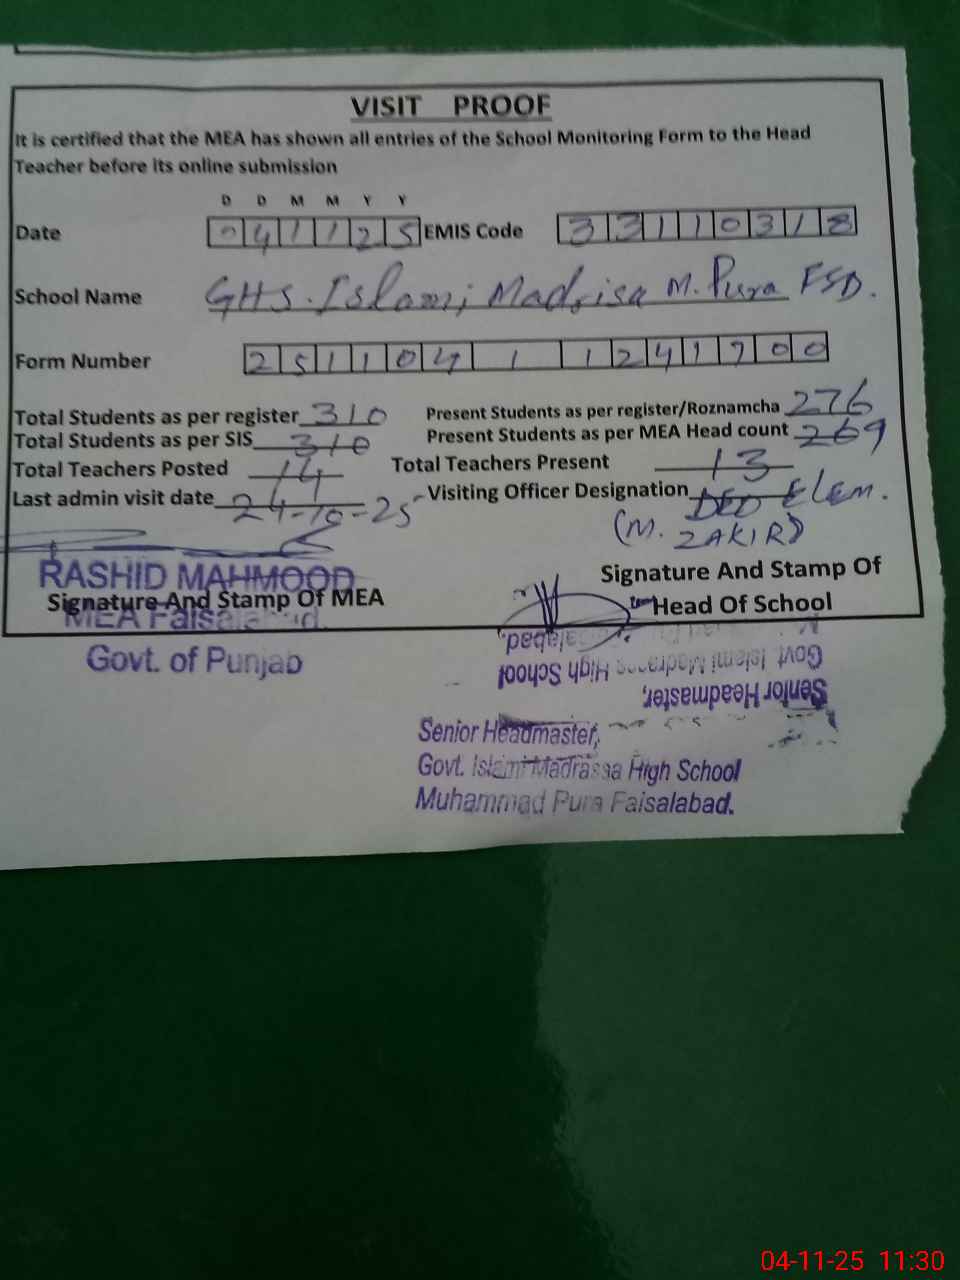 VISIT PROOF
It is certified that the MEA has shown all entries of the School Monitoring Form to the Head
Teacher before its online submission
D D M M Y Y
Date 0 4 1 1 2 5 EMIS Code 3 3 1 1 0 3 1 8
School Name GHS. Islami Madrisa M. Pura FSD.
Form Number 2 5 1 1 0 4 1 1 2 4 1 7 0 0
Total Students as per register 310 Present Students as per register/Roznamcha 276
Total Students as per SIS 310 Present Students as per MEA Head count 269
Total Teachers Posted 14 Total Teachers Present 13
Last admin visit date 24-10-25 Visiting Officer Designation DEO Elem.
(M. ZAKIR)
RASHID MAHMOOD
Signature And Stamp Of MEA
MEA Faisalabad.
Govt. of Punjab
Signature And Stamp Of
Head Of School
Faisalabad.
Govt. Islami Madrassa High School
Senior Headmaster,
Senior Headmaster,
Govt. Islami Madrassa High School
Muhammad Pura Faisalabad.
04-11-25 11:30